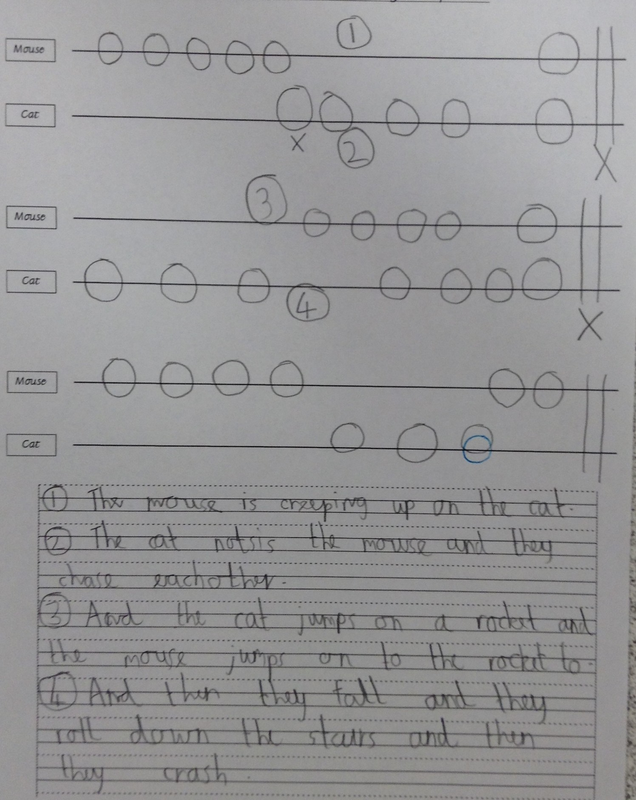 1
Mouse
Cat
X 2 X
3
Mouse
Cat
4 X
Mouse
Cat
1 The mouse is creeping up on the cat.
2 The cat notsis the mouse and they
chase eachother.
3 And the cat jumps on a rocket and
the mouse jumps on to the rocket to.
4 And then they fall and they
roll down the stairs and then
they crash.